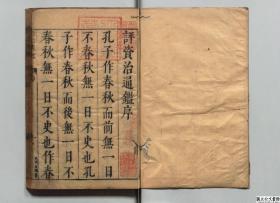 評資治通鑑序
孔子作春秋而前無一日
不春秋無一日不史也孔
子作春秋而後無一日不
春秋無一日不史也作春